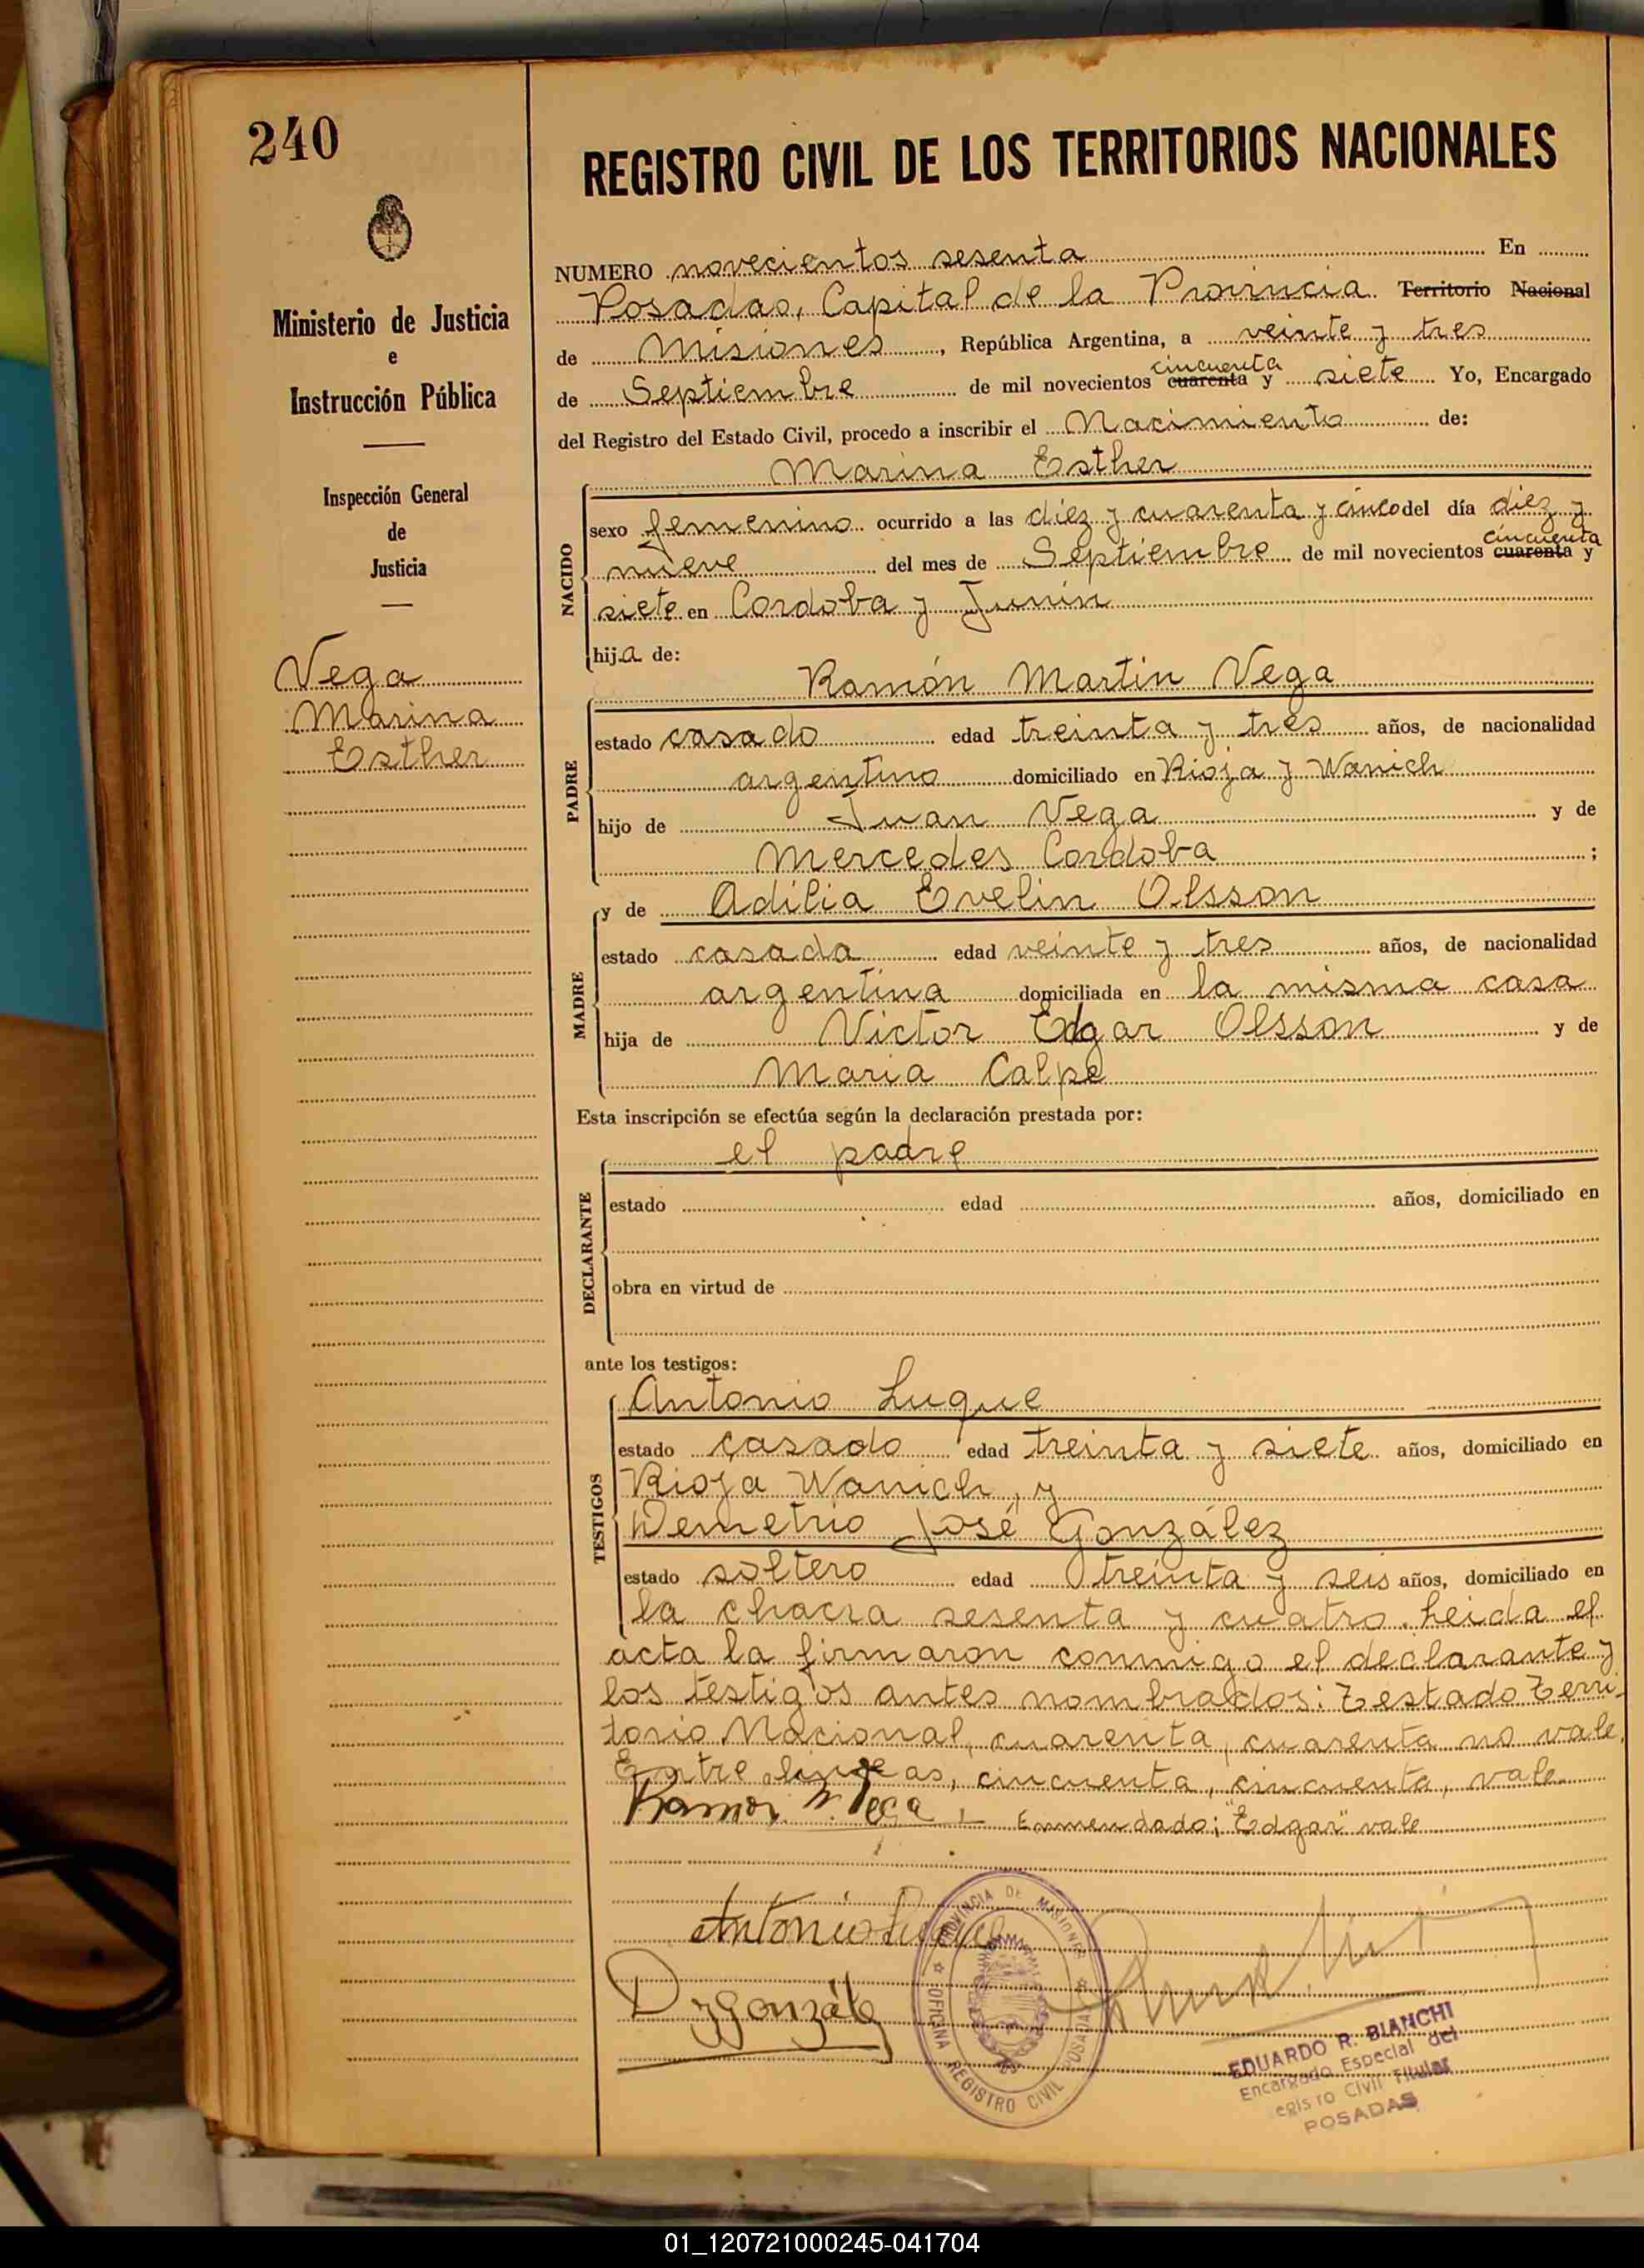 240
Ministerio de Justicia
e
Instrucción Pública
Inspección General
de
Justicia
Vega
Marina
Esther
REGISTRO CIVIL DE LOS TERRITORIOS NACIONALES
NUMERO novecientos sesenta En
Posadas, Capital de la Provincia Territorio Nacional
de Misiones, República Argentina, a veinte y tres
cincuenta
de Septiembre de mil novecientos cuarenta y siete Yo, Encargado
del Registro del Estado Civil, procedo a inscribir el Nacimiento de:
Marina Esther
NACIDO
sexo femenino ocurrido a las diez y cuarenta y cinco del día diez y
cincuenta
nueve del mes de Septiembre de mil novecientos cuarenta y
siete en Cordoba y Junín
hija de:
Ramón Martin Vega
PADRE
estado casado edad treinta y tres años, de nacionalidad
argentino domiciliado en Rioja y Wanich
hijo de Juan Vega y de
Mercedes Cordoba ;
y de Adilia Evelin Olsson
MADRE
estado casada edad veinte y tres años, de nacionalidad
argentina domiciliada en la misma casa
hija de Victor Edgar Olsson y de
Maria Calpe
Esta inscripción se efectúa según la declaración prestada por:
el padre
DECLARANTE
estado edad años, domiciliado en
obra en virtud de
ante los testigos:
Antonio Luque
TESTIGOS
estado casado edad treinta y siete años, domiciliado en
Rioja Wanich, y
Demetrio José González
estado soltero edad treinta y seis años, domiciliado en
la chacra sesenta y cuatro. Leida el
acta la firmaron conmigo el declarante y
los testigos antes nombrados: Testado Terri-
torio Nacional, cuarenta, cuarenta no vale.
Entre lineas, cincuenta, cincuenta, vale
Ramon M. Vega Enmendado: "Edgar" vale
Antonio Luque
D J González
PROVINCIA DE MISIONES
OFICINA REGISTRO CIVIL POSADAS
EDUARDO R. BIANCHI
Encargado Especial del
egis ro Civil Titular
POSADAS
01_120721000245-041704